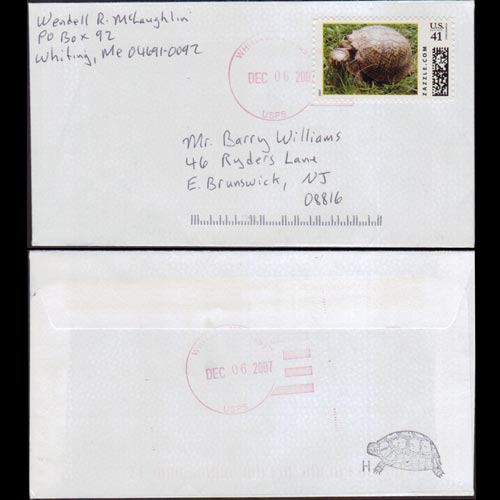 Wendell R. McLaughlin
PO Box 92
Whiting, Me 04691-0092
U.S.
41
ZAZZLE.COM
DEC 06 2007
USPS
Mr. Barry Williams
46 Ryders Lane
E. Brunswick, NJ
08816
DEC 06 2007
USPS
H